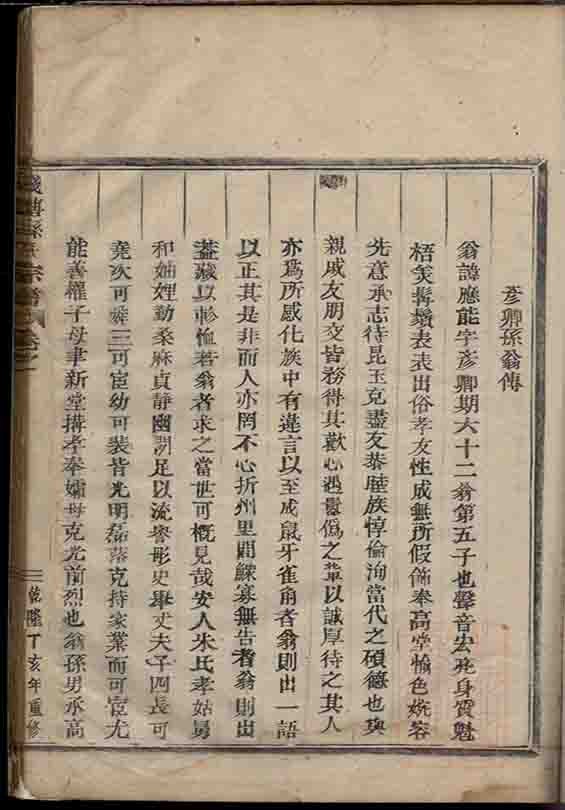 彥卿孫翁傳
翁諱應能字彥卿期六十二翁第五子也聲音宏亮身質魁
梧美髯鬚表表出俗孝友性成無所假飾奉高堂愉色婉容
先意承志待昆玉克盡友恭睦族惇倫洵當代之碩德也與
親戚友朋交皆務得其歡心遇囂僞之輩以誠厚待之其人
亦爲所感化族中有違言以至成鼠牙雀角者翁則出一語
以正其是非而人亦罔不心折州里間鰥寡無告者翁則出
葢藏以軫恤若翁者求之當世可概見哉安人朱氏孝姑舅
和妯娌勤桑麻貞靜幽閒足以流譽彤史舉丈夫子四長可
堯次可舜三可宦幼可裝皆光明磊落克持家業而可宦尤
能善權子母聿新堂搆孝奉孀母克光前烈也翁孫男承高
孫氏宗譜 卷之
乾隆丁亥年重修